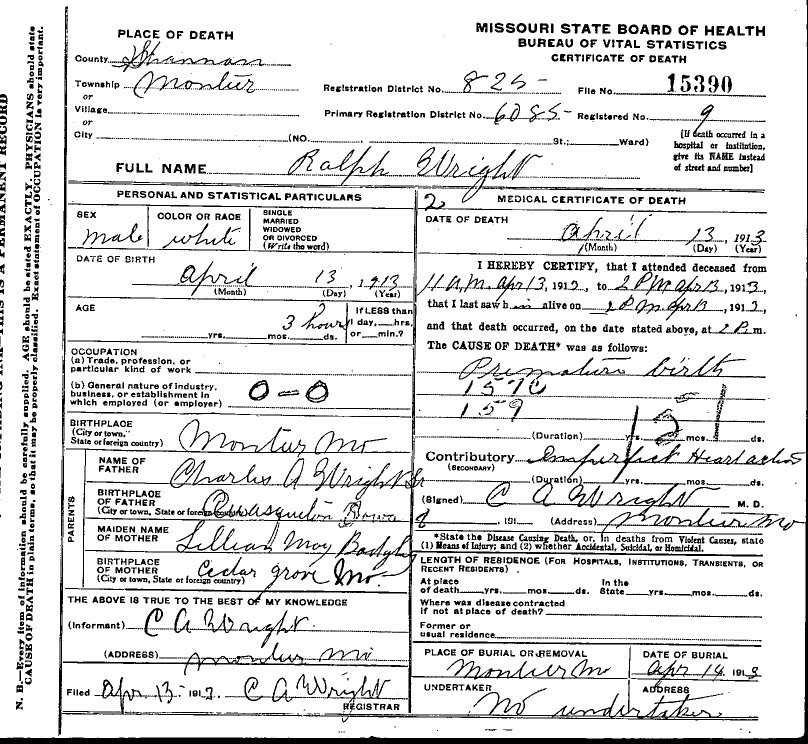 PLACE OF DEATH
County Shannon
Township Montier
or
Village
or
City (NO. St.; Ward)
MISSOURI STATE BOARD OF HEALTH
BUREAU OF VITAL STATISTICS
CERTIFICATE OF DEATH
Registration District No. 825 File No. 15390
Primary Registration District No. 6085 Registered No. 9
[If death occurred in a
hospital or institution,
give its NAME instead
of street and number]
FULL NAME Ralph Wright
PERSONAL AND STATISTICAL PARTICULARS
SEX
male
COLOR OR RACE
white
SINGLE
MARRIED
WIDOWED
OR DIVORCED
(Write the word)
DATE OF BIRTH
April 13, 1913
(Month) (Day) (Year)
AGE
3 hours
yrs. mos. ds.
If LESS than
1 day, hrs.
or min.?
OCCUPATION
(a) Trade, profession, or
particular kind of work
(b) General nature of industry,
business, or establishment in
which employed (or employer)
0-0
BIRTHPLACE
(City or town,
State or foreign country)
Montier Mo
PARENTS
NAME OF
FATHER
Charles A Wright Sr
BIRTHPLACE
OF FATHER
(City or town, State or foreign country)
Quasqueton Iowa
MAIDEN NAME
OF MOTHER
Lillian May
BIRTHPLACE
OF MOTHER
(City or town, State or foreign country)
Cedar grove Mo.
THE ABOVE IS TRUE TO THE BEST OF MY KNOWLEDGE
(Informant) C A Wright.
(ADDRESS) Montier Mo
Filed Apr 13- 191 C A Wright
REGISTRAR
2 MEDICAL CERTIFICATE OF DEATH
DATE OF DEATH
April 13, 1913
(Month) (Day) (Year)
I HEREBY CERTIFY, that I attended deceased from
11 a.m. apr 13, 191 , to 2 P m apr 13, 1913,
that I last saw h im alive on 2 P m apr 13, 191 ,
and that death occurred, on the date stated above, at 2 P. m.
The CAUSE OF DEATH* was as follows:
Premature birth
159
151
(Duration) yrs. mos. ds.
Contributory Imperfect Heart action
(SECONDARY)
(Duration) yrs. mos. ds.
(Signed) C A Wright M. D.
, 191 (Address) Montier Mo
*State the Disease Causing Death, or, in deaths from Violent Causes, state
(1) Means of Injury; and (2) whether Accidental, Suicidal, or Homicidal.
LENGTH OF RESIDENCE (FOR HOSPITALS, INSTITUTIONS, TRANSIENTS, OR
RECENT RESIDENTS).
At place
of death yrs. mos. ds.
In the
State yrs. mos. ds.
Where was disease contracted
if not at place of death?
Former or
usual residence
PLACE OF BURIAL OR REMOVAL
Montier Mo
DATE OF BURIAL
Apr 14 1913
UNDERTAKER
No undertaker.
ADDRESS
N. B.—Every item of information should be carefully supplied. AGE should be stated EXACTLY. PHYSICIANS should state
CAUSE OF DEATH in plain terms, so that it may be properly classified. Exact statement of OCCUPATION is very important.
THIS IS A PERMANENT RECORD